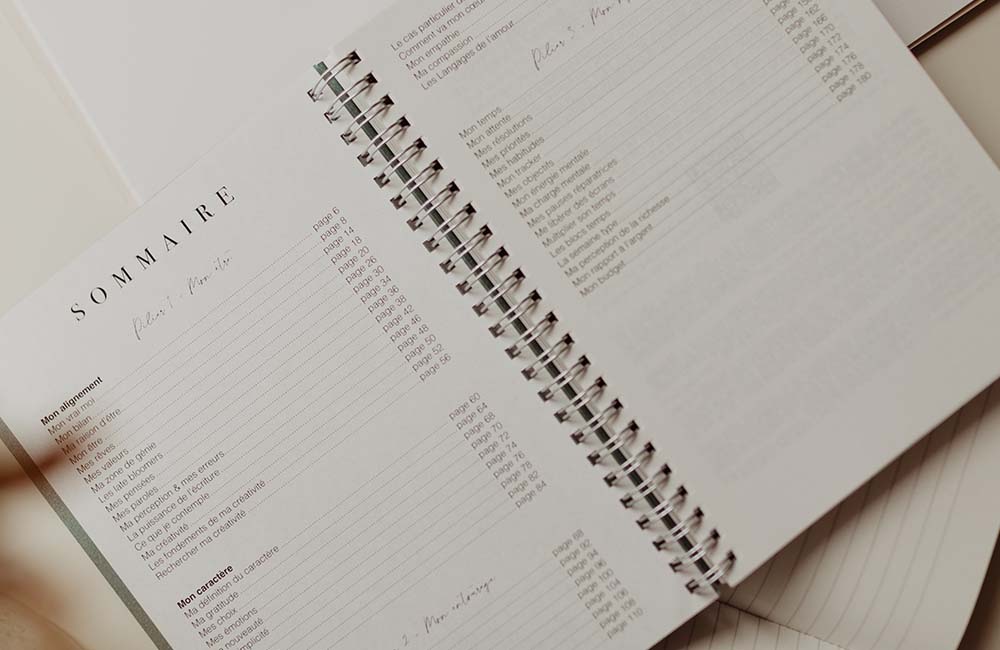 SOMMAIRE
Pilier 1 : Mon être
Mon alignement
Mon vrai moi page 6
Mon bilan page 8
Ma raison d'être page 14
Mon être page 18
Mes rêves page 20
Mes valeurs page 26
Ma zone de génie page 30
Les late bloomers page 34
Mes pensées page 36
Mes paroles page 38
Ma perception & mes erreurs page 42
La puissance de l'écriture page 46
Ce que je contemple page 48
Ma créativité page 50
Les fondements de ma créativité page 52
Rechercher ma créativité page 56
Mon caractère
Ma définition du caractère page 60
Ma gratitude page 64
Mes choix page 68
Mes émotions page 70
nouveauté page 72
page 74
page 76
page 78
page 82
page 84
2 : Mon entourage
page 88
page 92
page 94
page 96
page 100
page 104
page 106
page 108
page 110
Le cas particulier d
Comment va mon cœur
Mon empathie
Ma compassion
Les Langages de l'amour
Pilier 3 : Mon
Mon temps
Mon attente
Mes résolutions
Mes priorités
Mes habitudes
Mon tracker
Mes objectifs
Mon énergie mentale
Ma charge mentale
Mes pauses réparatrices page 162
Me libérer des écrans page 166
Multiplier son temps page 170
Les blocs temps page 172
La semaine type page 174
Ma perception de la richesse page 176
Mon rapport à l'argent page 178
Mon budget page 180